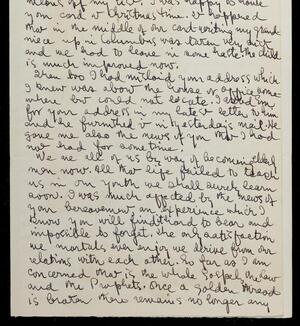 means of my life. I was happy to have
your card at Christmas time. It happened
that in the middle of our card writing my grand
niece up in Columbus was taken very sick
and we had to leave in some haste. The child
is much improved now.
Then too I had mislaid your address which
I knew was about the house or office some-
where but could not locate. I asked
for your address in my latest letter to him
and he furnished it in yesterday's mail. He
gave me also the news of you that I had
not had for some time.
We are all of us by way of becoming
men now. All that life failed to teach
us in our youth we shall surely learn
soon. I was much affected by the news of
your bereavement an experience which I
know you will find hard to bear and
impossible to forget. The only satisfaction
we mortals ever enjoy we derive from our
relations with each other. So far as I am
concerned that is the whole Gospel the Law
and the Prophets. Once a golden thread
is broken there remains no longer any